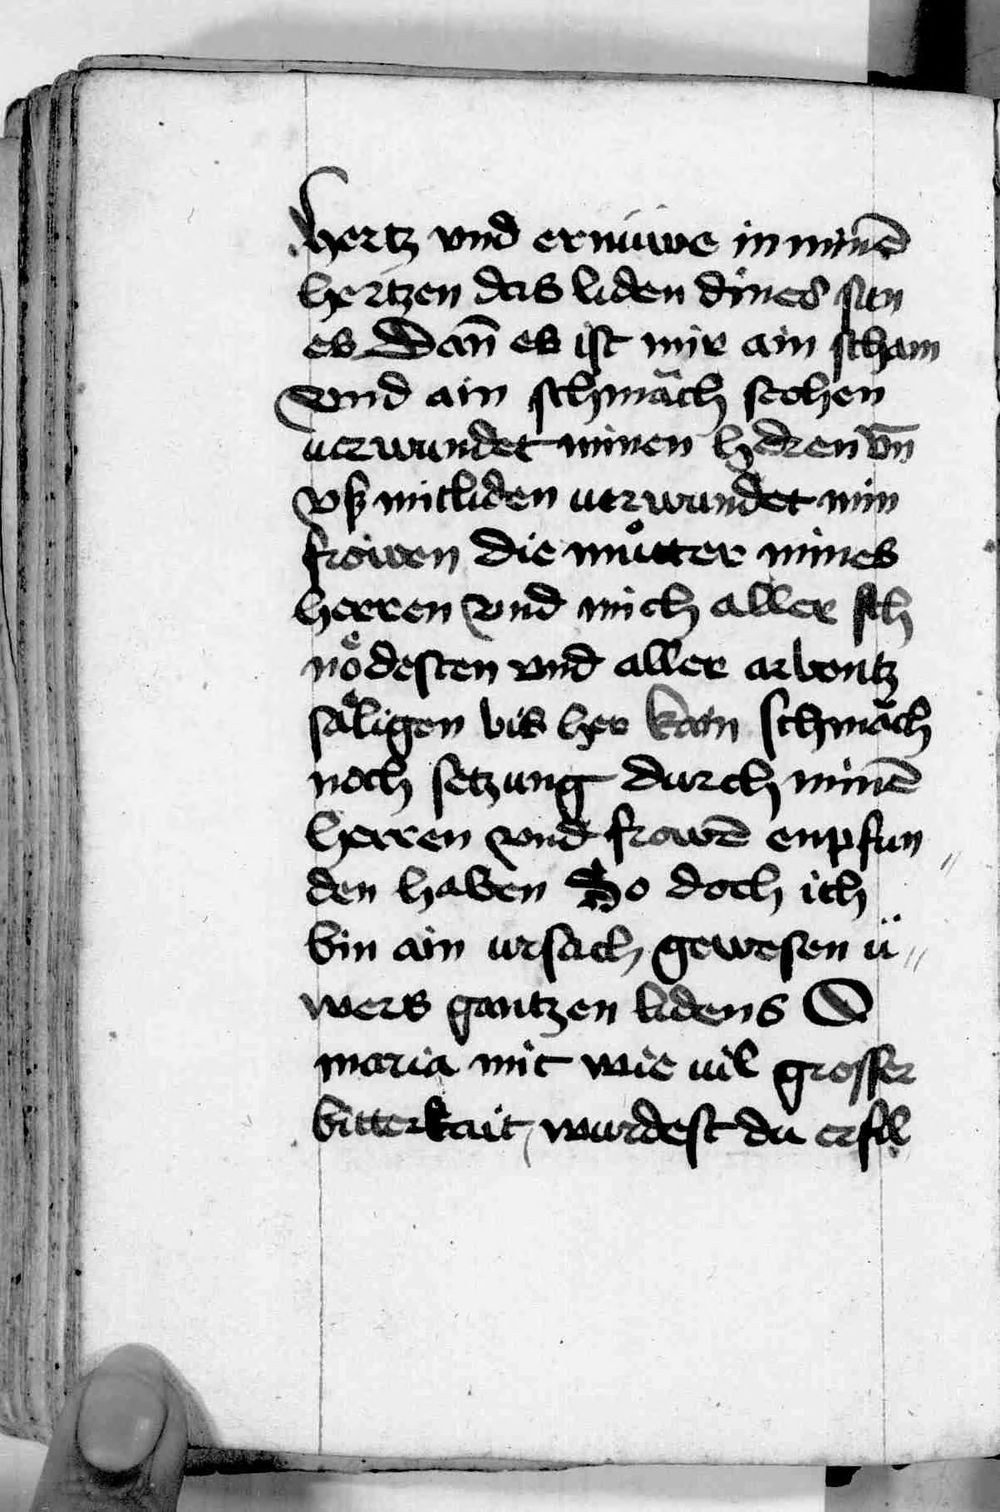 hertz vnd ernüwe in minē
hertzen das liden dines sun
es Dan̄ es ist mir ain scham
vnd ain schmäch sechen
uerwundet minen herren vn̄
vß mitliden uerwundet min
frowen die muͦtter mines
herren vnd mich aller sch
noͤdesten vnd aller arbentz
saͤligen bis her kain schmäch
noch setzung durch minē
herren vnd frowē enpfun
den haben So doch ich
bin ain ursach gewesen ü
wers gantzen lidens O
maria mit wie uil grosser
bitterkait wurdest du erfil